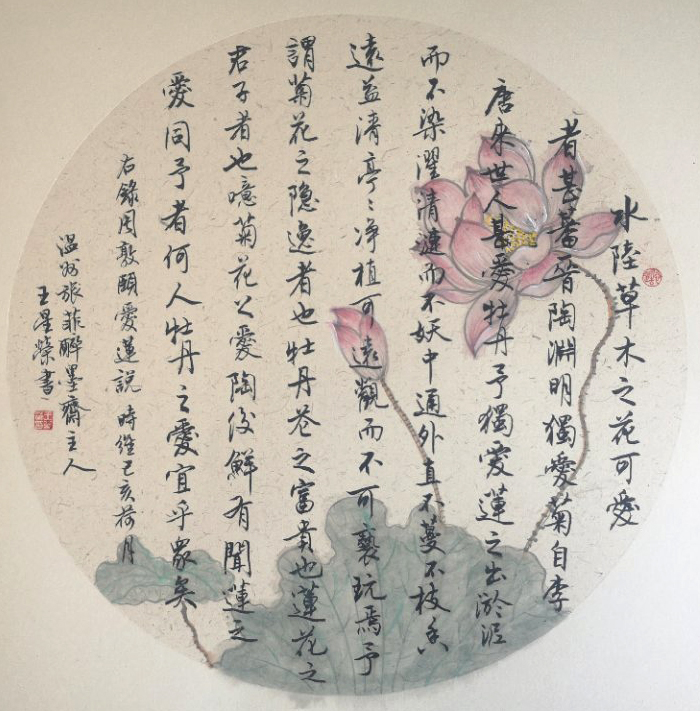 水陸草木之花可愛
者甚蕃晉陶淵明獨愛菊自李
唐來世人甚愛牡丹予獨愛蓮之出淤泥
而不染濯清漣而不妖中通外直不蔓不枝香
遠益清亭〻淨植可遠觀而不可褻玩焉予
謂菊花之隐逸者也牡丹花之富貴也蓮花之
君子者也噫菊花之愛陶後鮮有聞蓮之
愛同予者何人牡丹之愛宜乎眾矣
右錄周敦頤愛蓮説 時維己亥荷月
温州旅菲醉墨齋主人
王星書